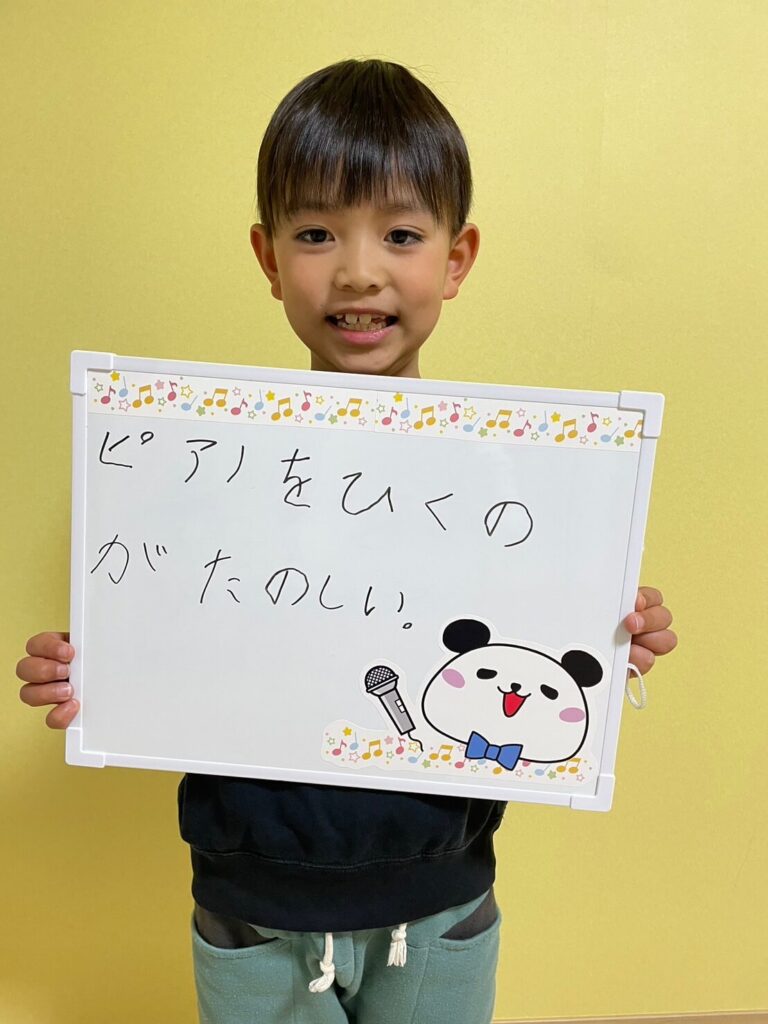 ピアノをひくの
がたのしい。